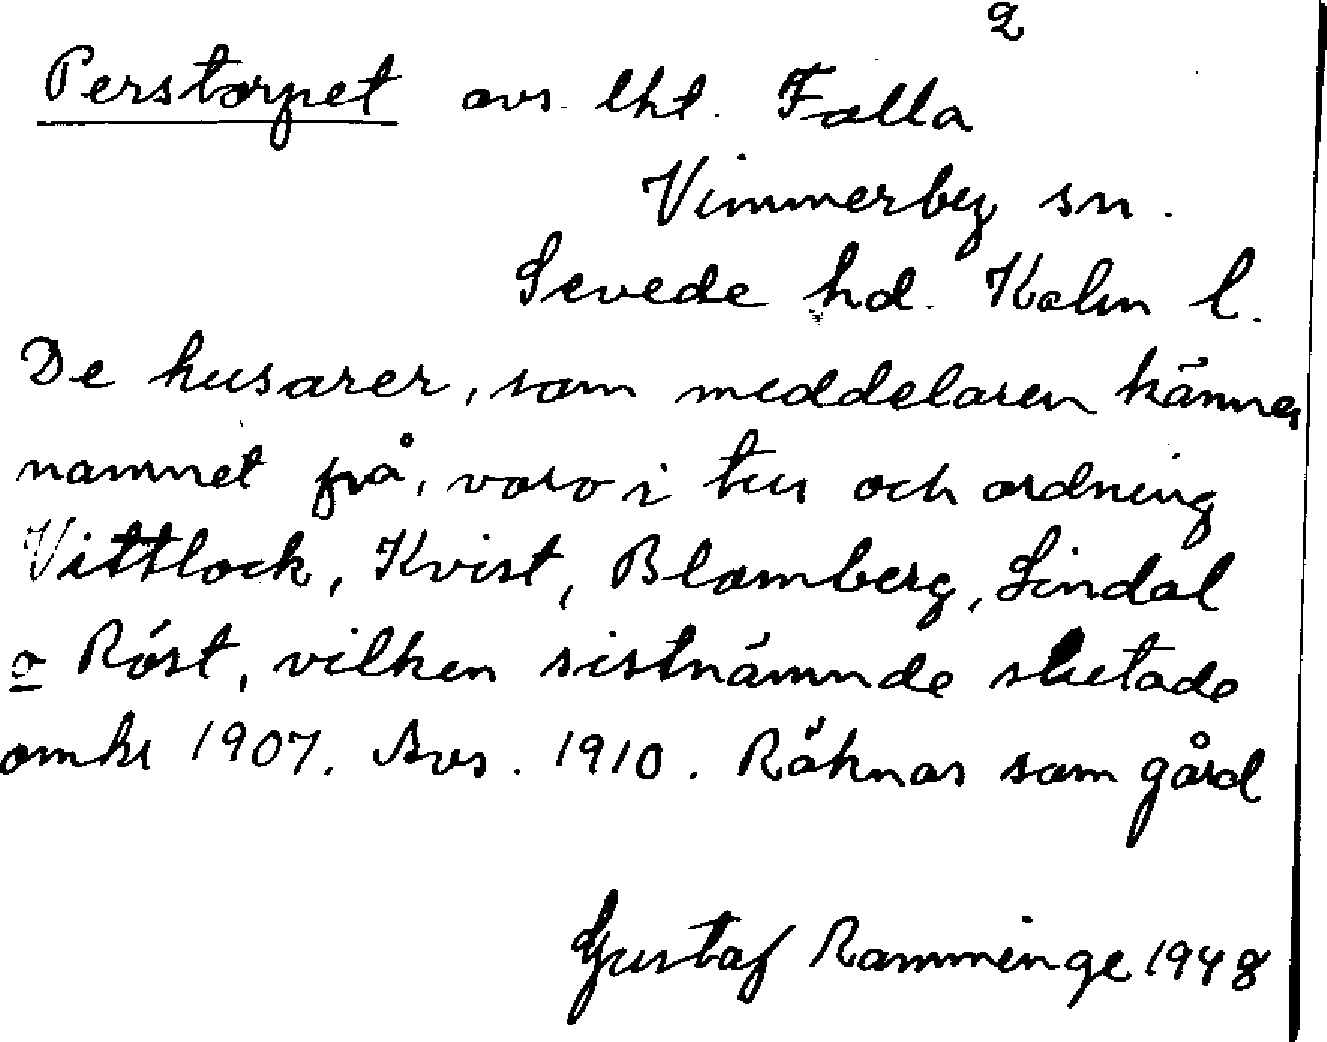 2
Perstorpet avs. lht. Falla
Vimmerby sn.
Sevede hd. Kalm l.
De husarer, som meddelaren känner
namnet på, voro i tur och ordning
Vittlock, Kvist, Blomberg, Lindal
o Röst, vilken sistnämnde slutade
omkr 1907. Avs. 1910. Räknas som gård
Gustaf Ramminge 1948